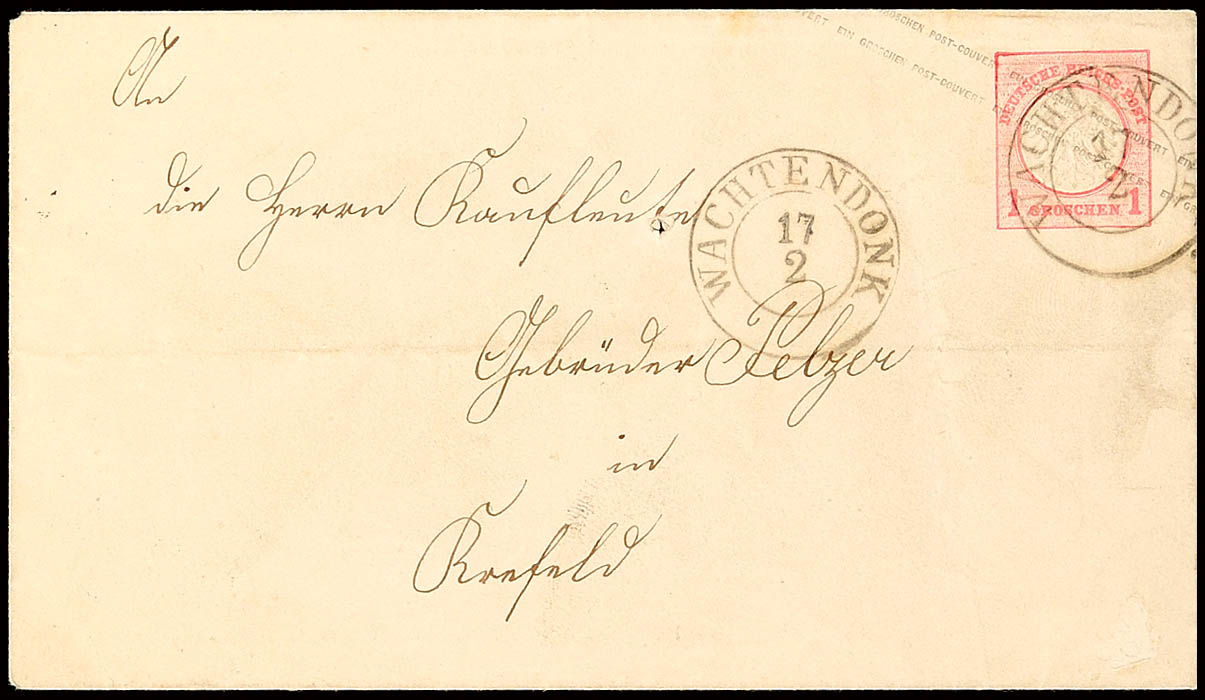 VERT EIN GROSCHEN POST-COUVERT
GROSCHEN POST-COUVERT
DEUTSCHE REICHS-POST
1 GROSCHEN 1
WACHTENDONK
17
2
WACHTENDONK
17
2
An
die Herrn Kaufleute
Gebrüder Pelzer
in
Krefeld